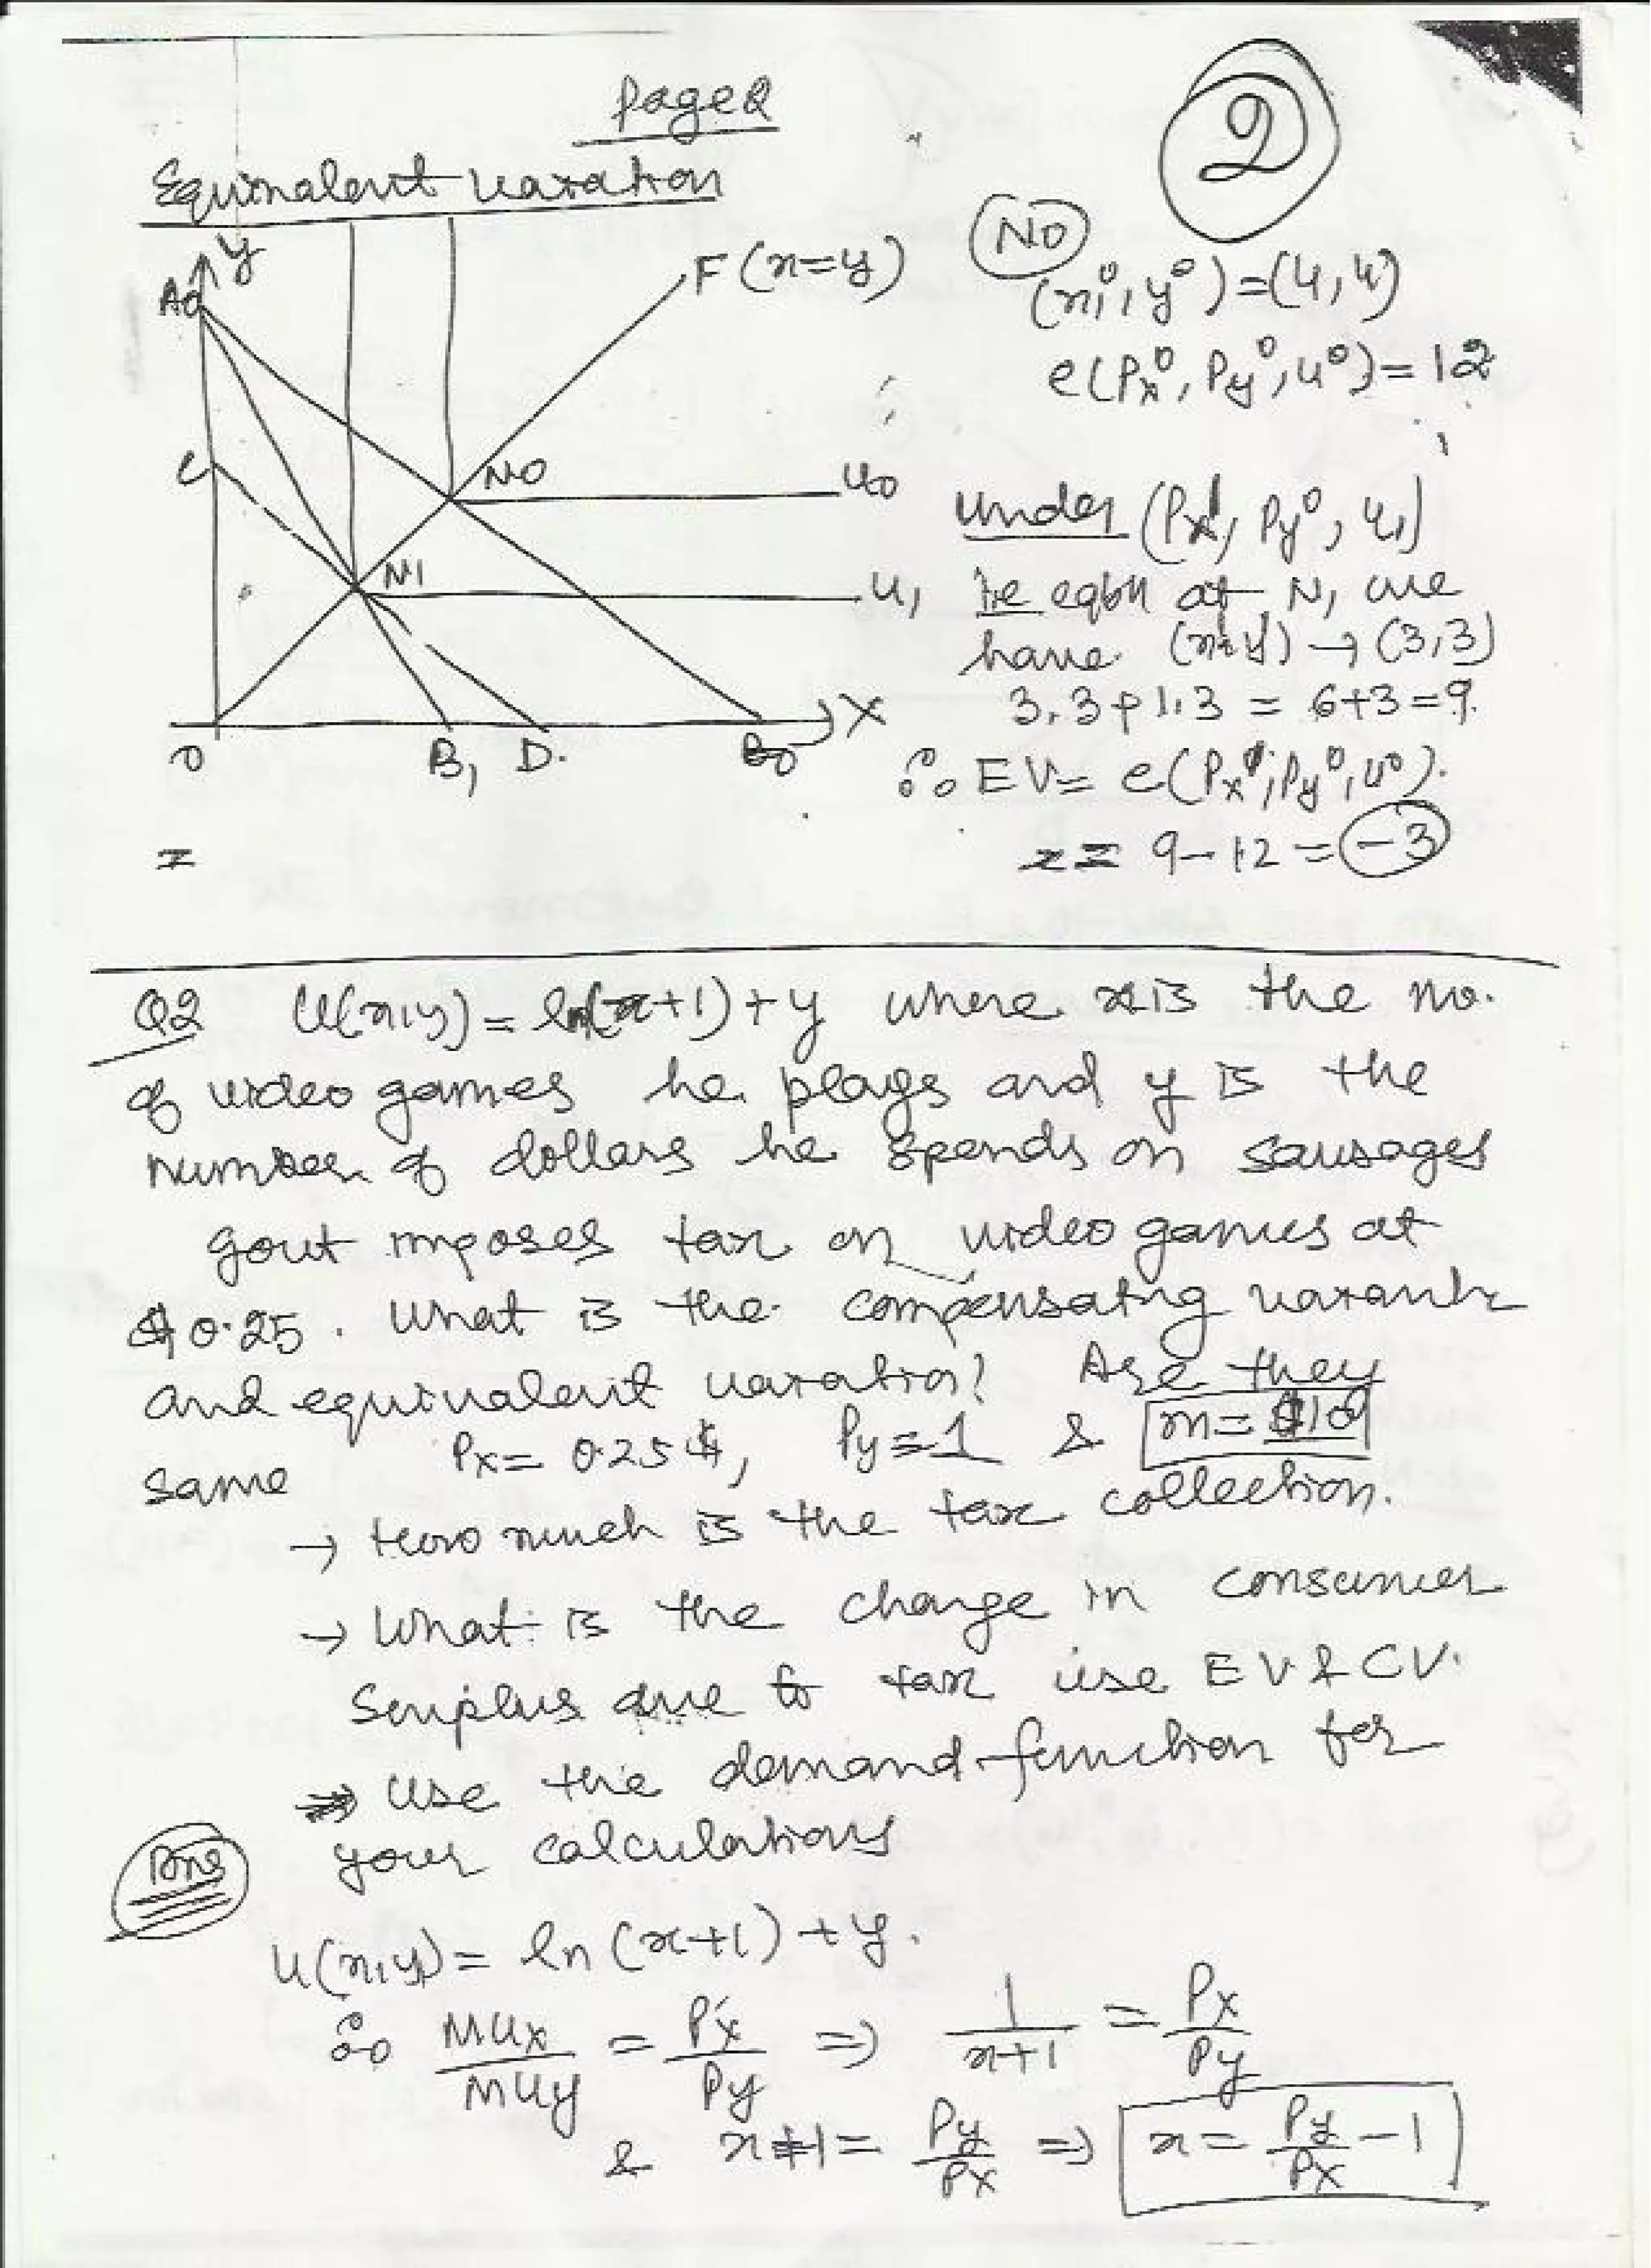 Page 2
2
Equivalent variation
y
A0
F (x=y)
C
N0
U0
N1
U1
O
B1
D.
B0
X
=
N0
(x1⁰, y⁰) = (4, 4)
e(Px⁰, Py⁰, u⁰) = 12
Under (Px¹, Py⁰, u1)
ie eqbm at N1 we
have (x¹y¹) → (3,3)
3.3+1.3 = 6+3 = 9.
∴ EV = e(Px⁰, Py⁰, u⁰).
= = 9-12 = -3
Q2 U(x,y) = ln(x+1) + y where x is the no.
of video games he plays and y is the
number of dollars he spends on sausages
govt imposes tax on video games at
$0.25. What is the compensating
and equivalent variation? Are they
same Px = 0.25$, Py = 1 & m = $10
→ How much is the tax collection.
→ What is the change in consumer
surplus due to tax use EV & CV.
→ Use the demand function for
your calculations
Ans
U(x,y) = ln(x+1) + y.
∴ MUx/MUy = Px/Py ⇒ 1/(x+1) = Px/Py
& x+1 = Py/Px ⇒ x = Py/Px - 1